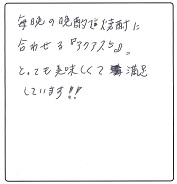 毎晩の晩酌で焼酎に
合わせる『アクアス5』。
とっても美味しくて満足
しています!!